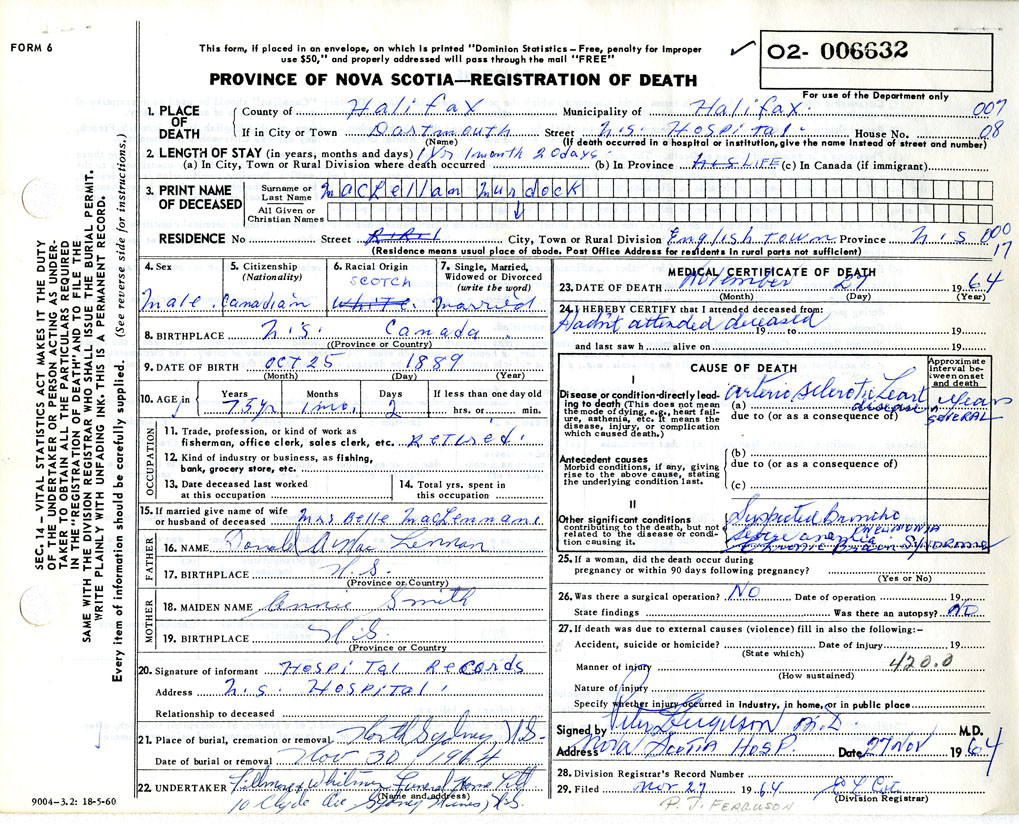 FORM 6
This form, if placed in an envelope, on which is printed "Dominion Statistics – Free, penalty for improper
use $50," and properly addressed will pass through the mail "FREE"
✓ 02- 006632
PROVINCE OF NOVA SCOTIA—REGISTRATION OF DEATH
For use of the Department only
1. PLACE OF DEATH { County of Halifax Municipality of Halifax. 007
If in City or Town Dartmouth Street N.S. Hospital. House No. 08
(Name) (If death occurred in a hospital or institution, give the name instead of street and number)
2. LENGTH OF STAY (in years, months and days) 1 Yr 1 month 20 days.
(a) In City, Town or Rural Division where death occurred (b) In Province LIFE (c) In Canada (if immigrant)
3. PRINT NAME OF DECEASED
Surname or Last Name MacLellan Murdock
All Given or Christian Names
RESIDENCE No Street R.R.#1 City, Town or Rural Division Englishtown Province N.S 000
(Residence means usual place of abode. Post Office Address for residents in rural parts not sufficient) 17
4. Sex Male.
5. Citizenship (Nationality) Canadian
6. Racial Origin SCOTCH White.
7. Single, Married, Widowed or Divorced (write the word) Married
8. BIRTHPLACE N.S. Canada.
(Province or Country)
9. DATE OF BIRTH OCT 25 1889
(Month) (Day) (Year)
10. AGE in { Years Months Days If less than one day old
75 yr 1 mo. 2 hrs. or min.
OCCUPATION
11. Trade, profession, or kind of work as
fisherman, office clerk, sales clerk, etc. Retired.
12. Kind of industry or business, as fishing,
bank, grocery store, etc.
13. Date deceased last worked
at this occupation
14. Total yrs. spent in
this occupation
15. If married give name of wife
or husband of deceased Mrs Belle MacLennan.
FATHER
16. NAME Donald A. Mac Lennan
17. BIRTHPLACE N.S.
(Province or Country)
MOTHER
18. MAIDEN NAME Annie Smith
19. BIRTHPLACE N.S.
(Province or Country
20. Signature of informant Hospital Records
Address N.S. Hospital.
Relationship to deceased
21. Place of burial, cremation or removal North Sydney N.S.
Date of burial or removal Nov 30/1964
22. UNDERTAKER Fillmore & Whitman Funeral Home Ltd
(Name and address)
10 Clyde Ave Sydney Mines, N.S.
9004–3.2: 18-5-60
MEDICAL CERTIFICATE OF DEATH
23. DATE OF DEATH November 27 1964
(Month) (Day) (Year)
24. I HEREBY CERTIFY that I attended deceased from:
Hadn't attended deceased
19 to 19
and last saw h alive on 19
CAUSE OF DEATH
Approximate interval between onset and death
I
Disease or condition directly leading to death (This does not mean
the mode of dying, e.g., heart failure, asthenia, etc. It means the
disease, injury, or complication
which caused death.)
(a) Arterio sclerotic Heart disease
due to (or as a consequence of)
SEVERAL Years
Antecedent causes
Morbid conditions, if any, giving
rise to the above cause, stating
the underlying condition last.
(b)
due to (or as a consequence of)
(c)
II
Other significant conditions
contributing to the death, but not
related to the disease or condition
causing it.
Suspected Broncho
PNEUMONIA
Chronic Brain SYNDROME
25. If a woman, did the death occur during
pregnancy or within 90 days following pregnancy?
(Yes or No)
26. Was there a surgical operation? NO Date of operation 19
State findings Was there an autopsy? NO
27. If death was due to external causes (violence) fill in also the following:–
Accident, suicide or homicide? Date of injury 19
(State which)
Manner of injury 420.0
(How sustained)
Nature of injury
Specify whether injury occurred in industry, in home, or in public place
Signed by Peter Ferguson M.D M.D.
Address Nova Scotia Hosp. Date 27 Nov 1964
28. Division Registrar's Record Number
29. Filed Nov 27 1964
(Division Registrar)
P. J. FERGUSON
SEC. 14 – VITAL STATISTICS ACT MAKES IT THE DUTY
OF THE UNDERTAKER OR PERSON ACTING AS UNDERTAKER
TO OBTAIN ALL THE PARTICULARS REQUIRED
IN THE "REGISTRATION OF DEATH" AND TO FILE THE
SAME WITH THE DIVISION REGISTRAR WHO SHALL ISSUE THE BURIAL PERMIT.
WRITE PLAINLY WITH UNFADING INK. THIS IS A PERMANENT RECORD.
Every item of information should be carefully supplied. (See reverse side for instructions.)